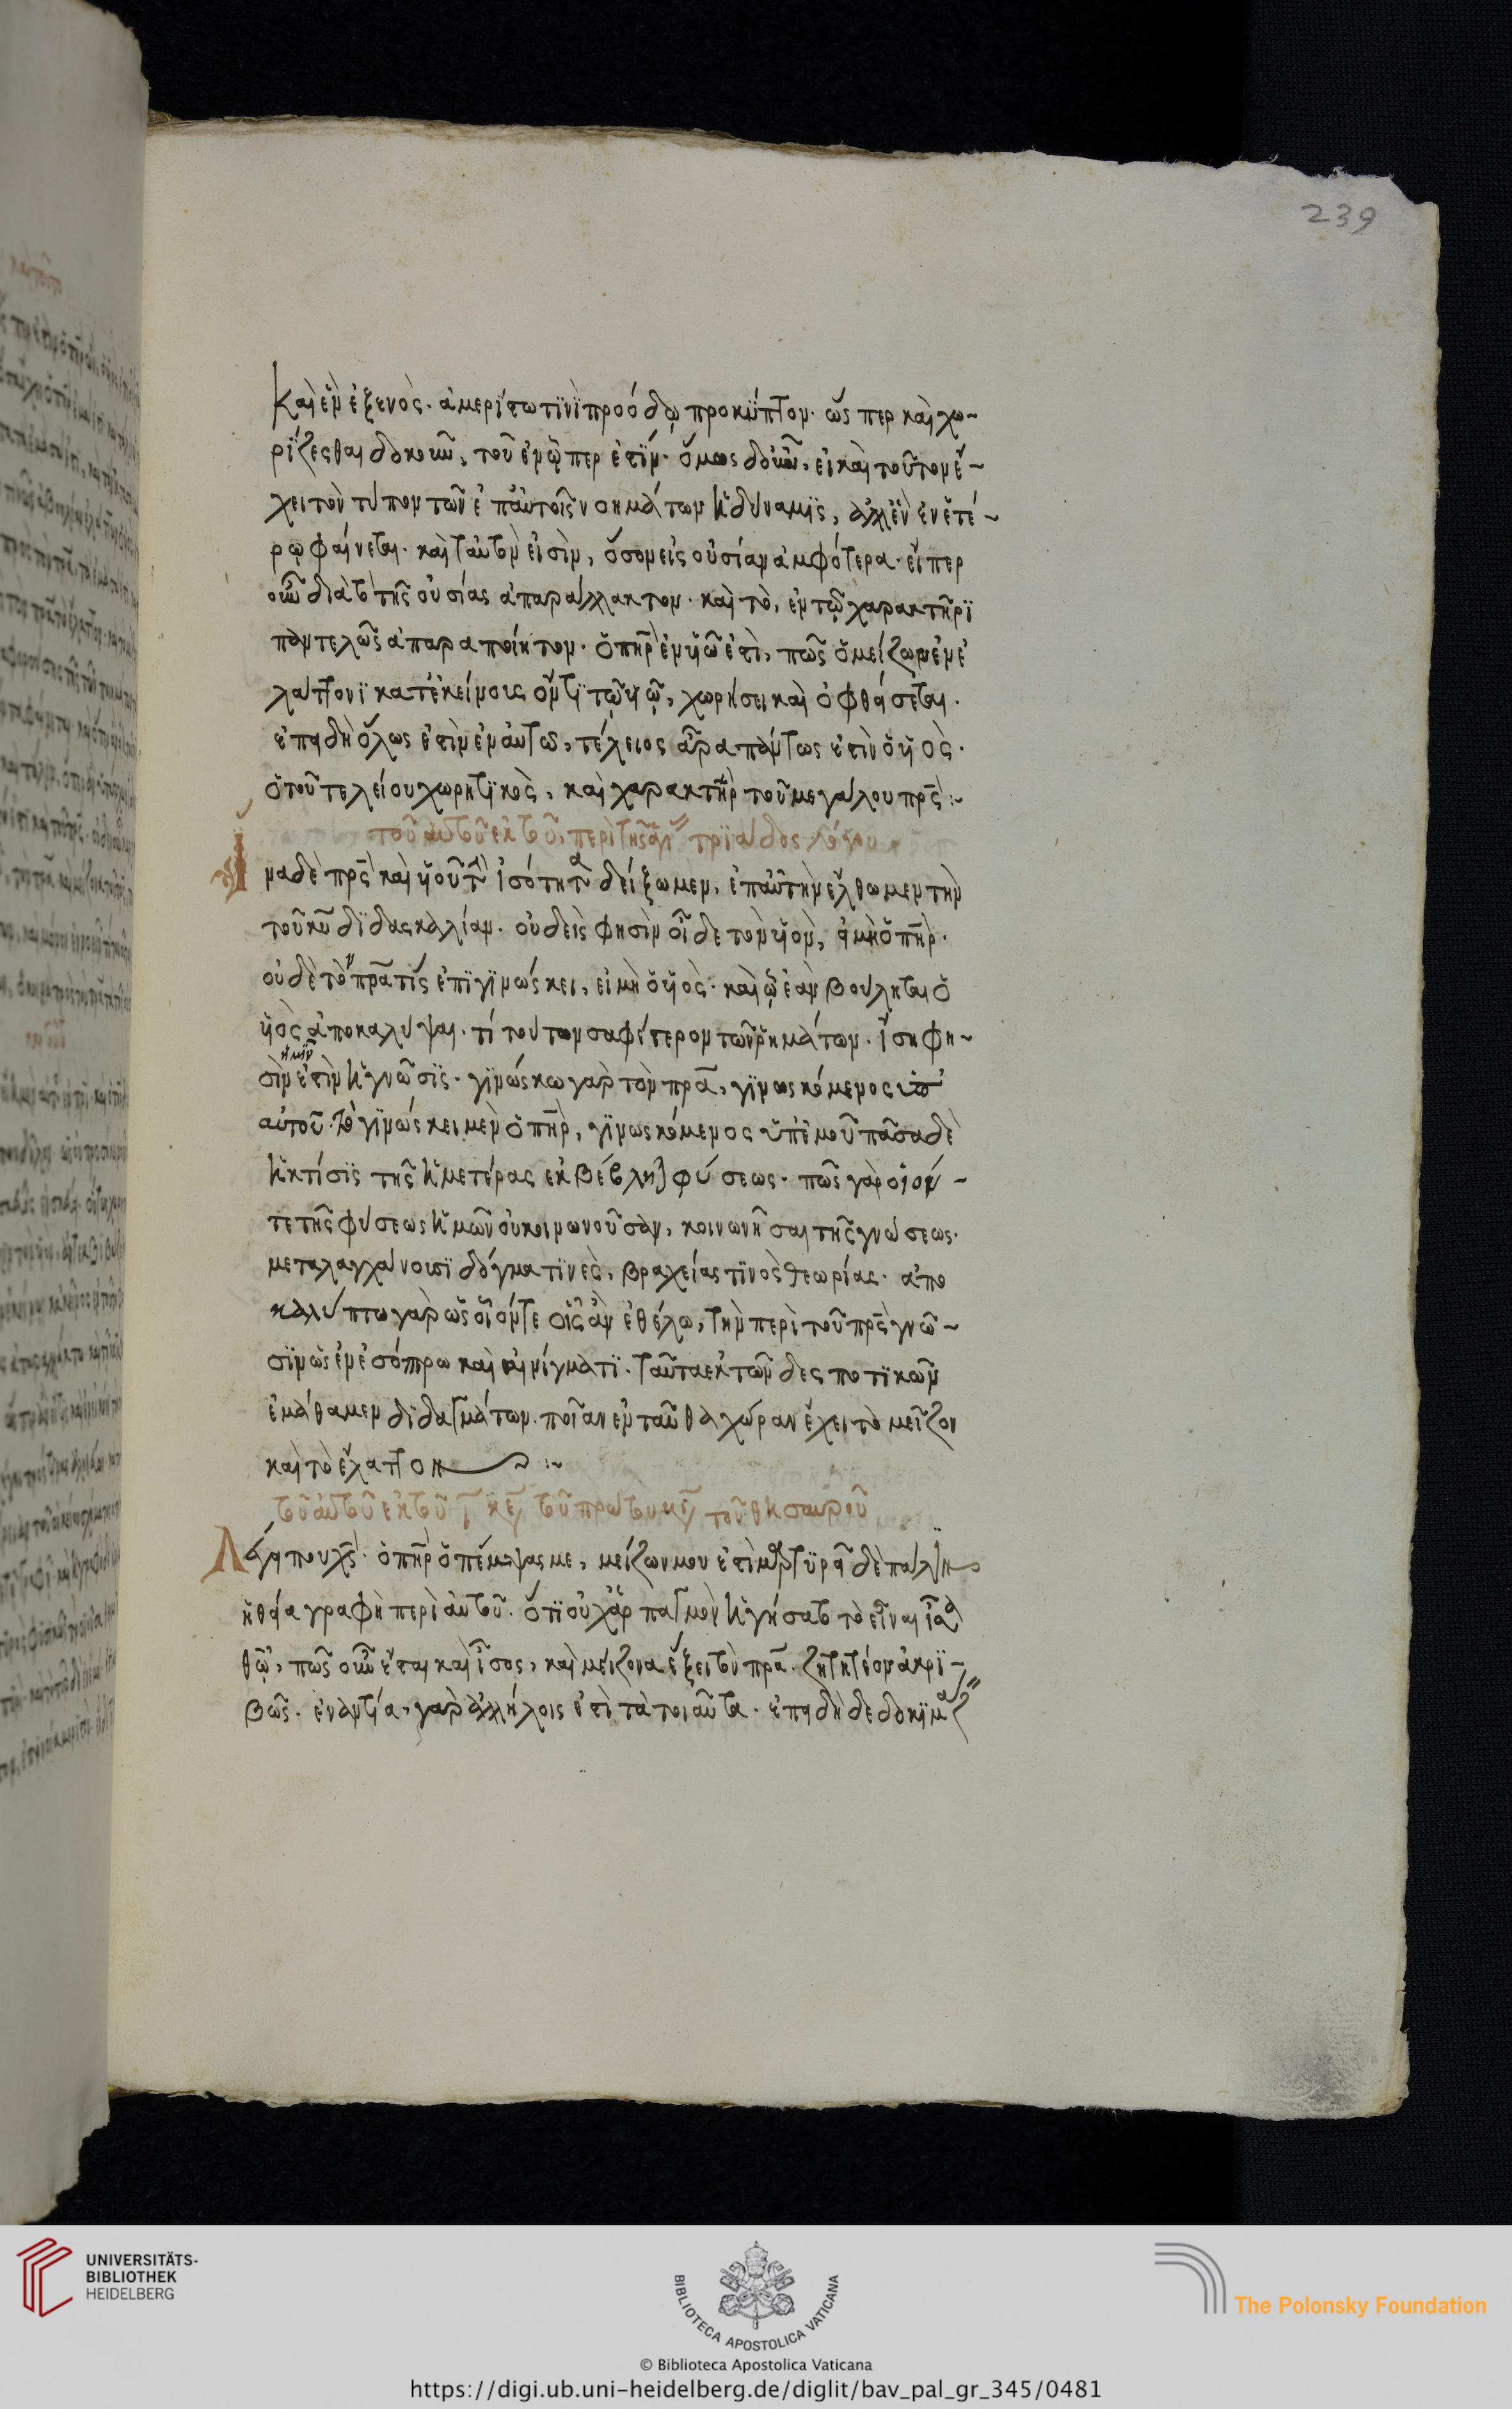 239
Καὶ ἓν ἐξ ἑνὸς· ἀμερίστω τινὶ προόδω προκύπτον· ὥσπερ καὶ χω-
ρίζεσθαι δοκοῦν, τοῦ ἐν ὧπερ ἐστίν· ὅμως δ' οὖν, εἰ καὶ τοῦτον ἔ-
χει τὸν τύπον τῶν ἐπ' αὐτοῖς νοημάτων ἡ δύναμις, ἀλλ' ἓν ἐν ἑτέ-
ρω φαίνεται· καὶ ταὐτόν εἰσιν, ὅσον εἰς οὐσίαν ἀμφότερα· εἴπερ
οὖν διὰ τὸ τῆς οὐσίας ἀπαράλλακτον· καὶ τὸ, ἐν τῶ χαρακτῆρι
παντελῶς ἀπαραποίητον· ὁ πηρ ἐν υἱῶ ἐστὶ, πῶς ὁ μείζων ἐν ἐ
λάττονι κατ' ἐκείνους ὄντι τῶ υἱῶ, χωρήσει καὶ ὀφθήσεται.
ἐπειδὴ ὅλως ἐστὶν ἐν αὐτῶ, τέλειος ἄρα πάντως ἐστὶν ὁ υἱὸς·
ὁ τοῦ τελείου χωρητικὸς, καὶ χαρακτὴρ τοῦ μεγάλου πρς :~
τοῦ αὐτοῦ ἐκ τοῦ, περὶ τῆς ἁγι τριάδος λόγου
Ἵνα δὲ πρς καὶ υἱοῦ τὴν ἰσότητα δείξωμεν, ἐπ' αὐτὴν ἔλθωμεν τὴν
τοῦ κυ διδασκαλίαν· οὐδεὶς φησὶν οἶδε τὸν υἱὸν, εἰ μὴ ὁ πηρ·
οὐδὲ τὸν πρα τίς ἐπιγινώσκει, εἰ μὴ ὁ υἱὸς· καὶ ὧ ἐὰν βούληται ὁ
υἱὸς ἀποκαλύψαι· τί τούτων σαφέστερον τῶν ῥημάτων· ἴση φη-
σὶν ἡμῖν ἐστὶν ἡ γνῶσις· γινώσκω γὰρ τὸν πρα, γινωσκόμενος ὑπ'
αὐτοῦ· γινώσκει με ὁ πηρ, γινωσκόμενος ὑπ' ἐμοῦ πᾶσα δὲ
ἡ κτίσις τῆς ἡμετέρας ἐκβέβληται φύσεως· πῶς γὰρ οἷόν-
τε τῆς φύσεως ἡμῶν οὐ κοινωνοῦσαν, κοινωνῆσαι τῆς γνώσεως·
μεταλαγχάνουσι δ' ὅγμα τινὲς, βραχείας τινὸς θεωρίας· ἀπο
καλύπτω γὰρ ὡς οἷόν τε οἷς ἂν ἐθέλω, τὴν περὶ τοῦ πρς γνῶ-
σιν ὡς ἐν ἐσόπτρω καὶ αἰνίγματι· ταῦτα ἐκ τῶν δεσποτικῶν
ἐμάθομεν διδαγμάτων· ποῖαν ἐνταῦθα χώραν ἔχει τὸ μεῖζον
καὶ τὸ ἔλαττον :~
τοῦ αὐτοῦ ἐκ τοῦ κε τοῦ πρώτου κε τοῦ θησαυροῦ
Λέγει που χς· ὁ πηρ ὁ πέμψας με, μείζων μου ἐστὶ μαρτυρεῖ δὲ πάλιν
ἡ θεία γραφὴ περὶ αὐτοῦ· ὅτι οὐχ ἁρπαγμὸν ἡγήσατο τὸ εἶναι ἴσα
θῶ, πῶς οὖν ἔσται καὶ ἴσος, καὶ μείζονα ἕξει τὸν πρα· ζητητέον ἀκρι-
βῶς· ἐναντία, γὰρ ἀλλήλοις ἐστὶ τὰ τοιαῦτα· ἐπειδὴ δεδοκίμασ
UNIVERSITÄTS-
BIBLIOTHEK
HEIDELBERG
BIBLIOTECA APOSTOLICA VATICANA
The Polonsky Foundation
© Biblioteca Apostolica Vaticana
https://digi.ub.uni-heidelberg.de/diglit/bav_pal_gr_345/0481